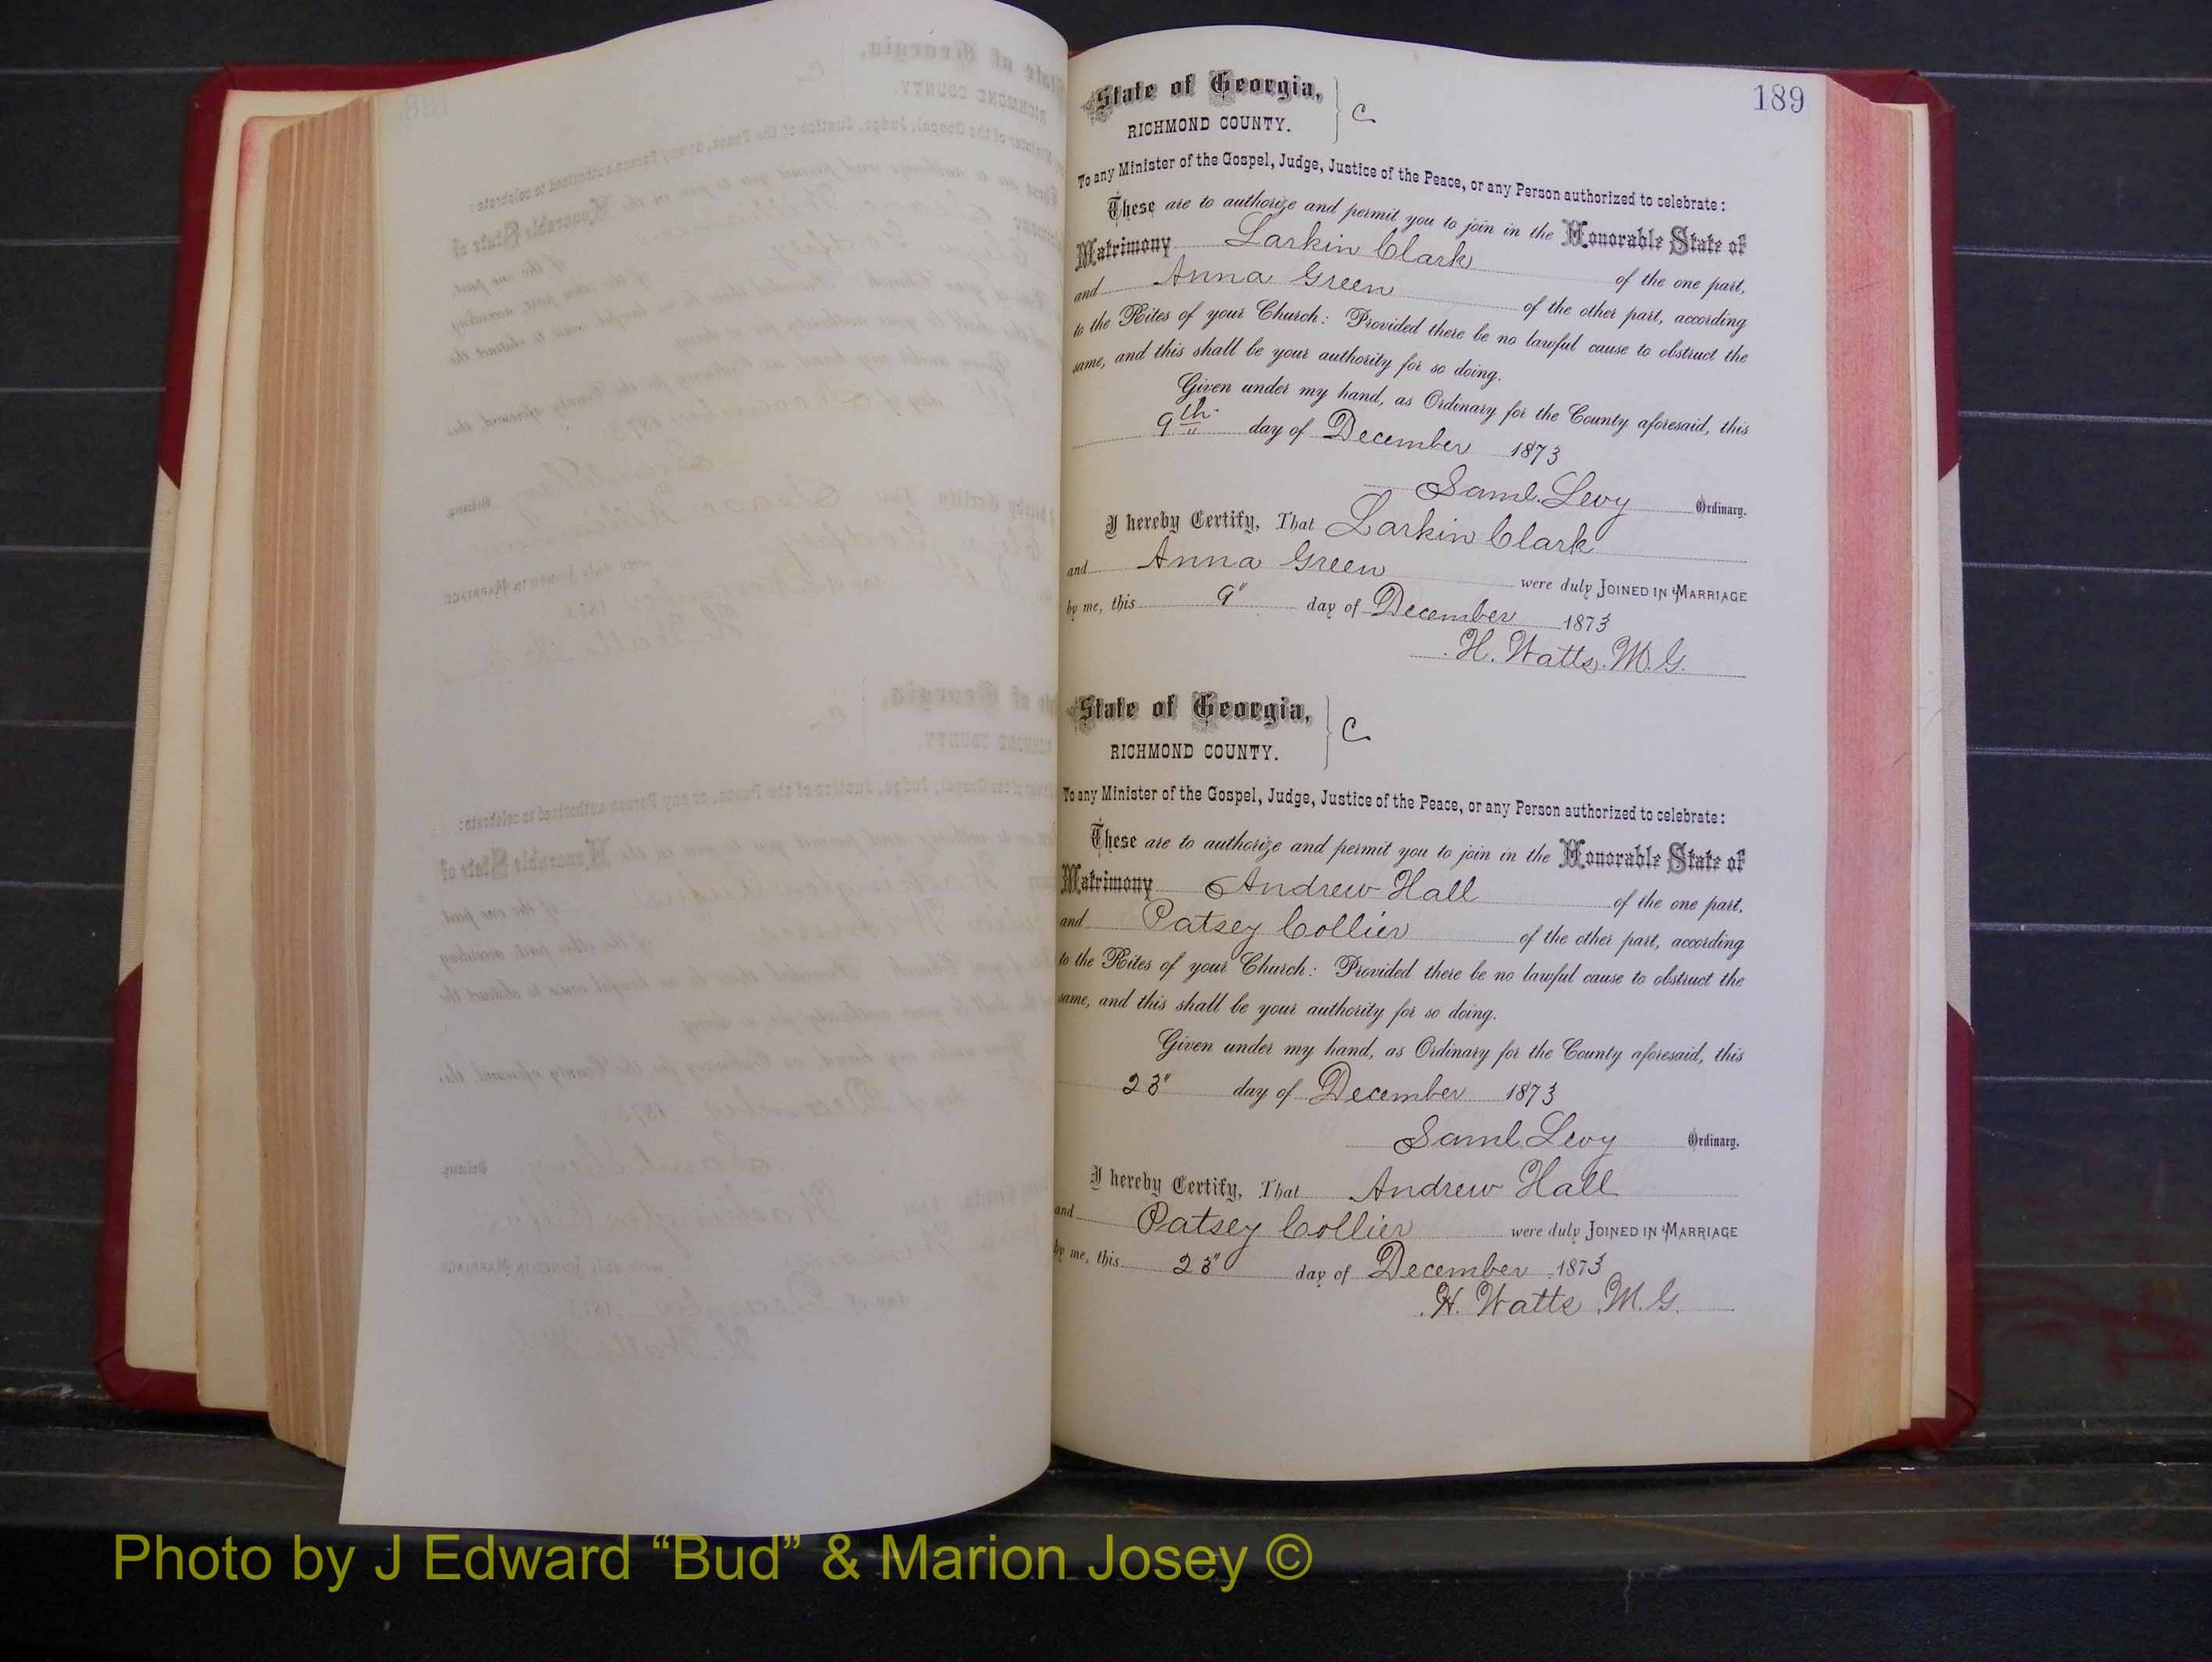 189
State of Georgia,
RICHMOND COUNTY. } C
To any Minister of the Gospel, Judge, Justice of the Peace, or any Person authorized to celebrate:
These are to authorize and permit you to join in the Honorable State of
Matrimony Larkin Clark of the one part,
and Anna Green of the other part, according
to the Rites of your Church: Provided there be no lawful cause to obstruct the
same, and this shall be your authority for so doing.
Given under my hand, as Ordinary for the County aforesaid, this
9th day of December 1873
Saml. Levy Ordinary.
I hereby Certify, That Larkin Clark
and Anna Green were duly JOINED IN MARRIAGE
by me, this 9" day of December 1873
H. Watts. M. G.
State of Georgia,
RICHMOND COUNTY. } C
To any Minister of the Gospel, Judge, Justice of the Peace, or any Person authorized to celebrate:
These are to authorize and permit you to join in the Honorable State of
Matrimony Andrew Hall of the one part,
and Patsey Collier of the other part, according
to the Rites of your Church: Provided there be no lawful cause to obstruct the
same, and this shall be your authority for so doing.
Given under my hand, as Ordinary for the County aforesaid, this
23" day of December 1873
Saml. Levy Ordinary.
I hereby Certify, That Andrew Hall
and Patsey Collier were duly JOINED IN MARRIAGE
by me, this 23" day of December 1873
H. Watts M. G.
Photo by J Edward “Bud” & Marion Josey ©